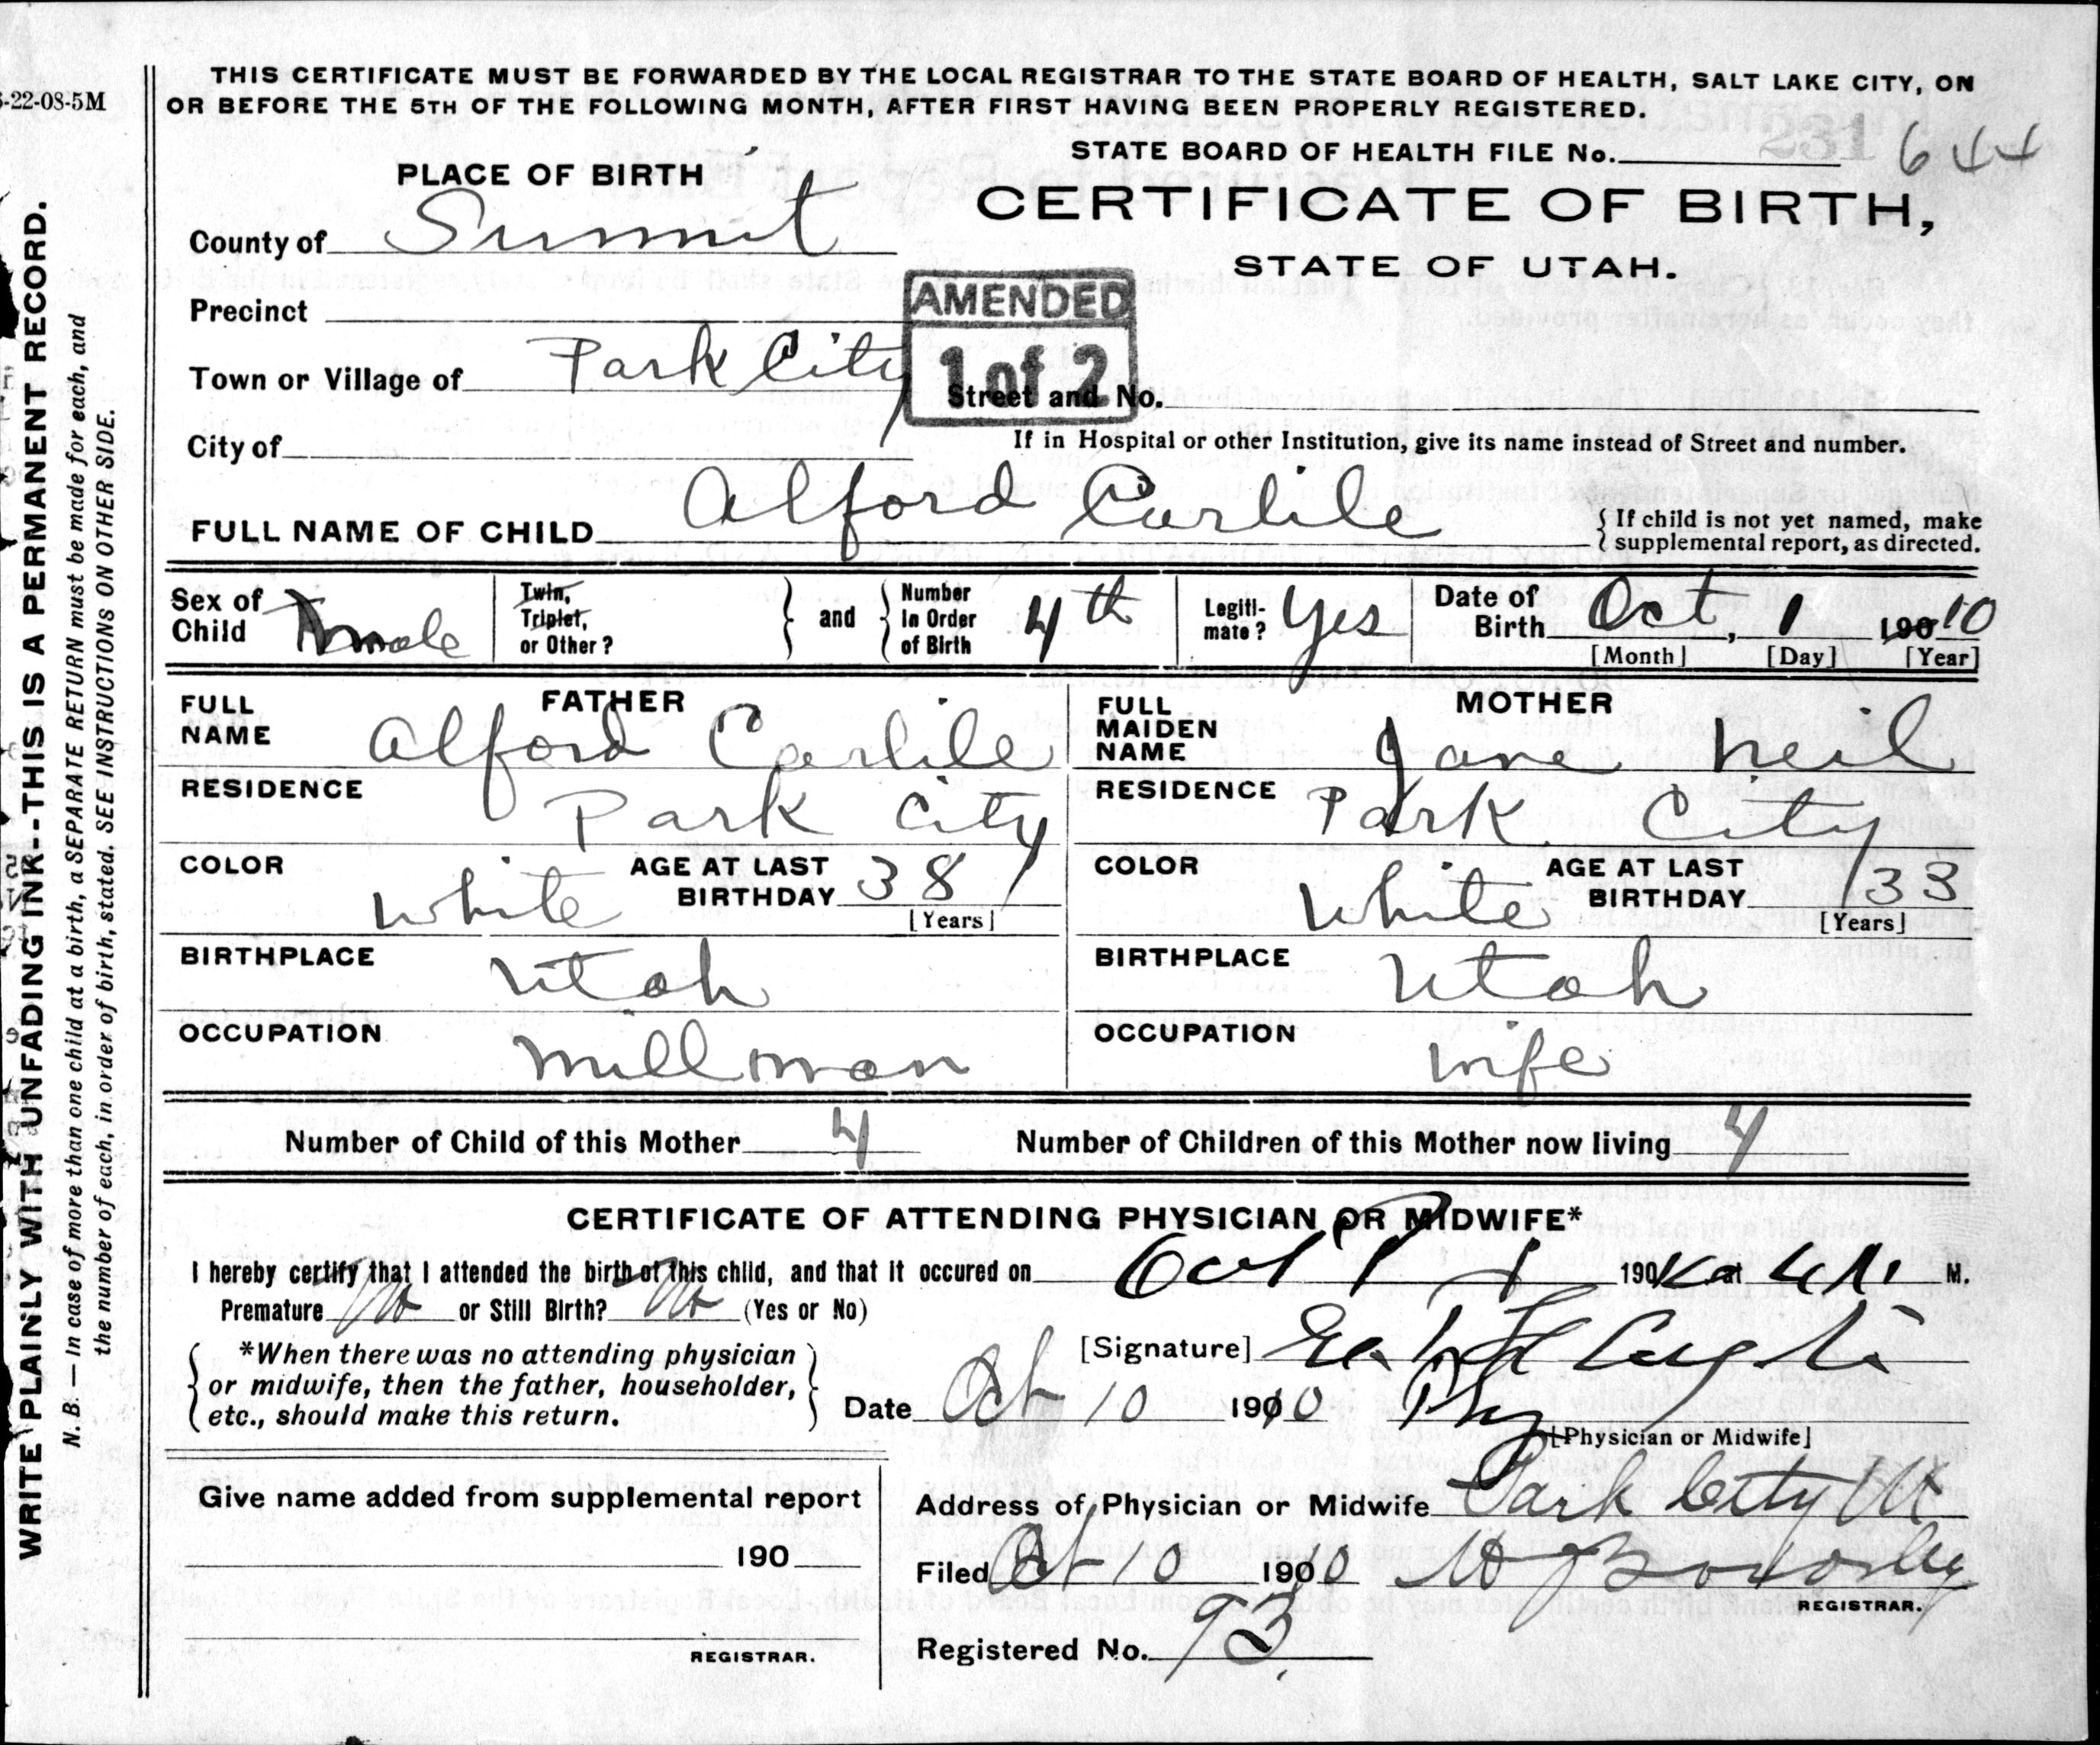 THIS CERTIFICATE MUST BE FORWARDED BY THE LOCAL REGISTRAR TO THE STATE BOARD OF HEALTH, SALT LAKE CITY, ON
-22-08-5M
OR BEFORE THE 5TH OF THE FOLLOWING MONTH, AFTER FIRST HAVING BEEN PROPERLY REGISTERED.
STATE BOARD OF HEALTH FILE No. 231 644
PLACE OF BIRTH
CERTIFICATE OF BIRTH,
County of Summit
STATE OF UTAH.
AMENDED
1 of 2
Precinct
Town or Village of Park City
Street and No.
City of
If in Hospital or other Institution, give its name instead of Street and number.
FULL NAME OF CHILD Alford Carlile
If child is not yet named, make
supplemental report, as directed.
Sex of Child male
Twin,
Triplet,
or Other?
and
Number
In Order
of Birth
4th
Legiti-
mate? Yes
Date of
Birth Oct, 1 19010
[Month] [Day] [Year]
FATHER
FULL
NAME Alford Carlile
RESIDENCE Park City
COLOR White
AGE AT LAST
BIRTHDAY 38
[Years]
BIRTHPLACE Utah
OCCUPATION millman
MOTHER
FULL
MAIDEN
NAME Jane Neil
RESIDENCE Park City
COLOR White
AGE AT LAST
BIRTHDAY 33
[Years]
BIRTHPLACE Utah
OCCUPATION wife
Number of Child of this Mother 4
Number of Children of this Mother now living 4
CERTIFICATE OF ATTENDING PHYSICIAN OR MIDWIFE*
I hereby certify that I attended the birth of this child, and that it occured on Oct 1 190 at M.
Premature No or Still Birth? No (Yes or No)
*When there was no attending physician
or midwife, then the father, householder,
etc., should make this return.
[Signature]
Date Oct 10 1910 Phy
[Physician or Midwife]
Address of Physician or Midwife Park City Ut
Give name added from supplemental report
190
REGISTRAR.
Filed Oct 10 1900
REGISTRAR.
Registered No. 93
WRITE PLAINLY WITH UNFADING INK--THIS IS A PERMANENT RECORD.
N. B. — In case of more than one child at a birth, a SEPARATE RETURN must be made for each, and
the number of each, in order of birth, stated. SEE INSTRUCTIONS ON OTHER SIDE.